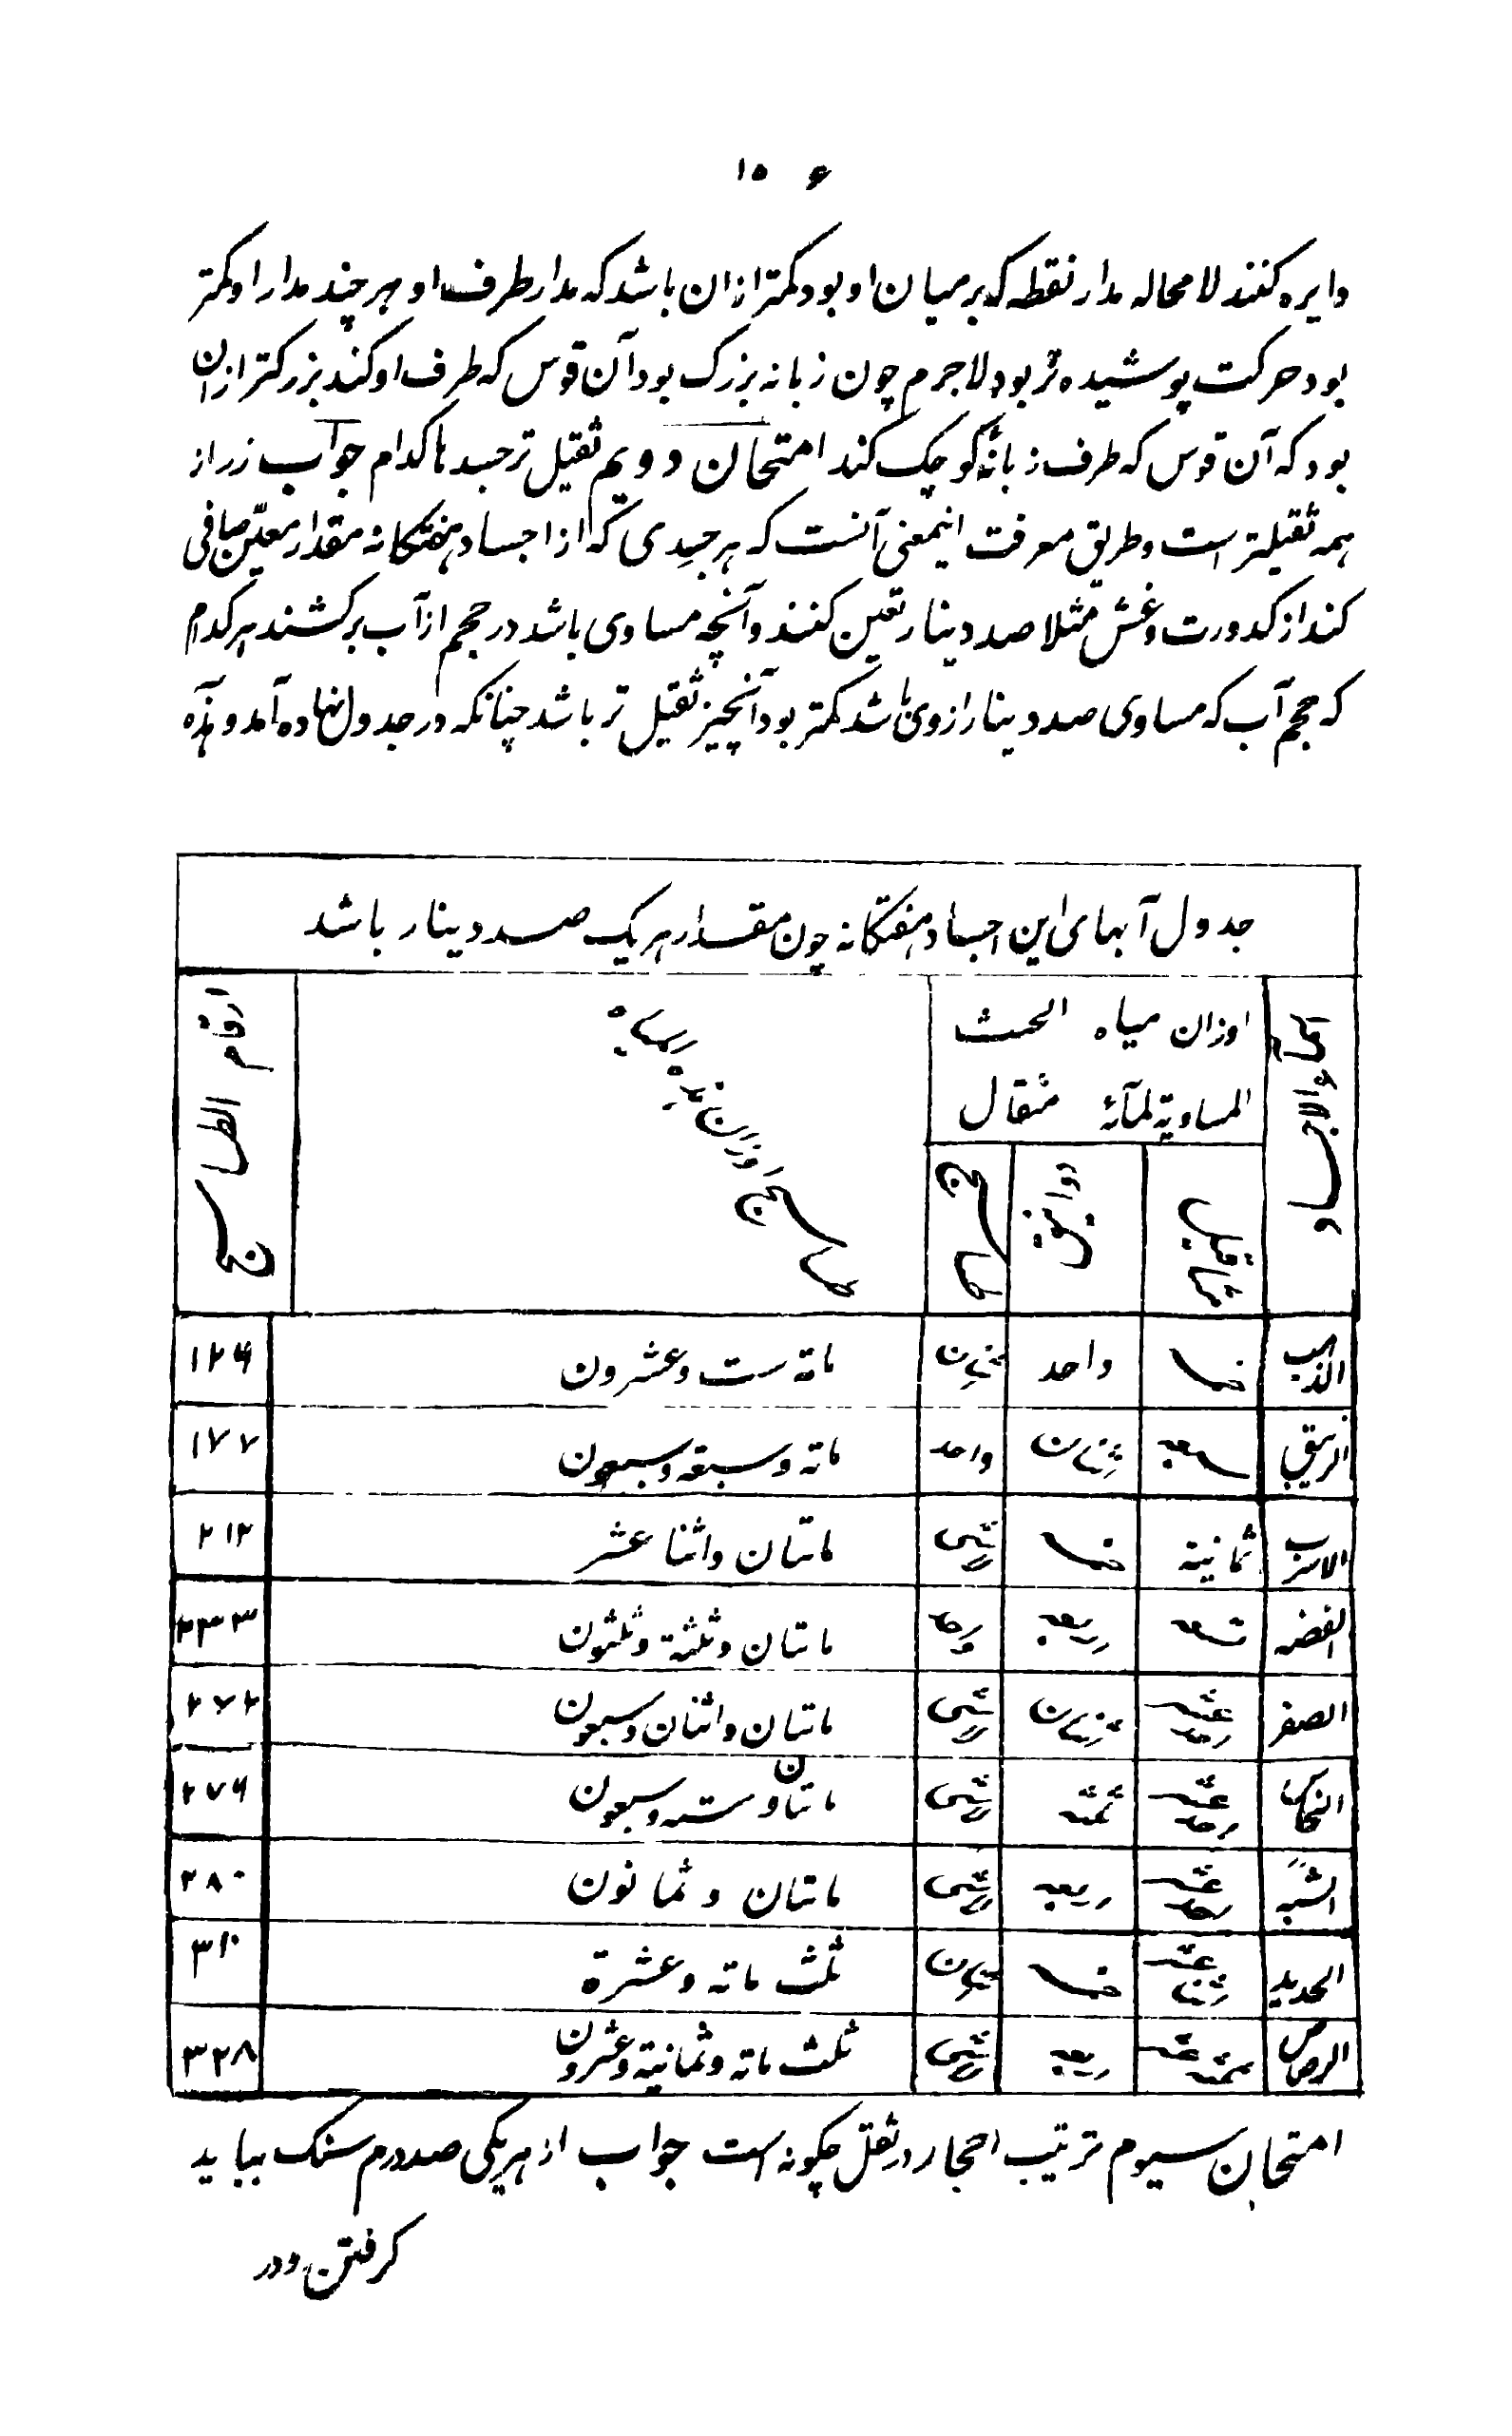 ۱۵۶
دایره کنند لا محاله مدار نقطه که بر میان او بود کمتر ازان باشد که مدار طرف او هر چند مدار او کمتر
بود حرکت پوشیده تر بود لاجرم چون زبانه بزرک بود آن قوس که طرف او کند بزرکتر ازان
بود که آن قوس که طرف زبانهٔ کوچک کند امتحان دویم ثقیل تر جسدها کدام جواب زر از
همه ثقیلتر است و طریق معرفت اینمعنی آنست که هر جسدی که از اجساد هفتکانه مقدار معیّن صافی
کند از کدورت و غش مثلا صد دینار تعین کنند و آنچه مساوی باشد در حجم از آب برکشند هر کدام
که حجم آب که مساوی صد دینار از وی باشد کمتر بود آنچیز ثقیل تر باشد چنانکه در جدول نهاده آمد و هذه
جدول آبهای این اجساد هفتکانه چون مقدار هر یک صد دینار باشد
والاجساد
اوزان میاه
المساویة لمائة مثقال
مثاقیل
دوانیق
طساسیج
طساسیج اوزان هذه المیاه
ارقام الطساسیج
الذهب خمسة واحد اثنان مائة ست وعشرون ۱۲۶
الزیبق سبعة اثنان واحد مائة وسبعة وسبعون ۱۷۷
الاسرب ثمانیة خمسة شیی ماتتان واثنا عشر ۲۱۲
الفضه تسعة اربعة واحد ماتتان وثلثة وثلثون ۲۳۳
الصفر احد عشر اثنان شیی ماتتان واثنان وسبعون ۲۷۲
النحاس احد عشر ثلثة شیی ماتتان وستة وسبعون ۲۷۶
الشبه احد عشر اربعة شیی ماتتان وثمانون ۲۸۰
الحدید اثنا عشر خمسة اثنان ثلث مائه وعشرة ۳۱۰
الرصاص ثلثة عشر اربعة شیی ثلث مائه وثمانیة وعشرون ۳۲۸
امتحان سیوم ترتیب احجار در ثقل چکونه است جواب از هر یکی صد درم سنک بباید
کرفتن ودر